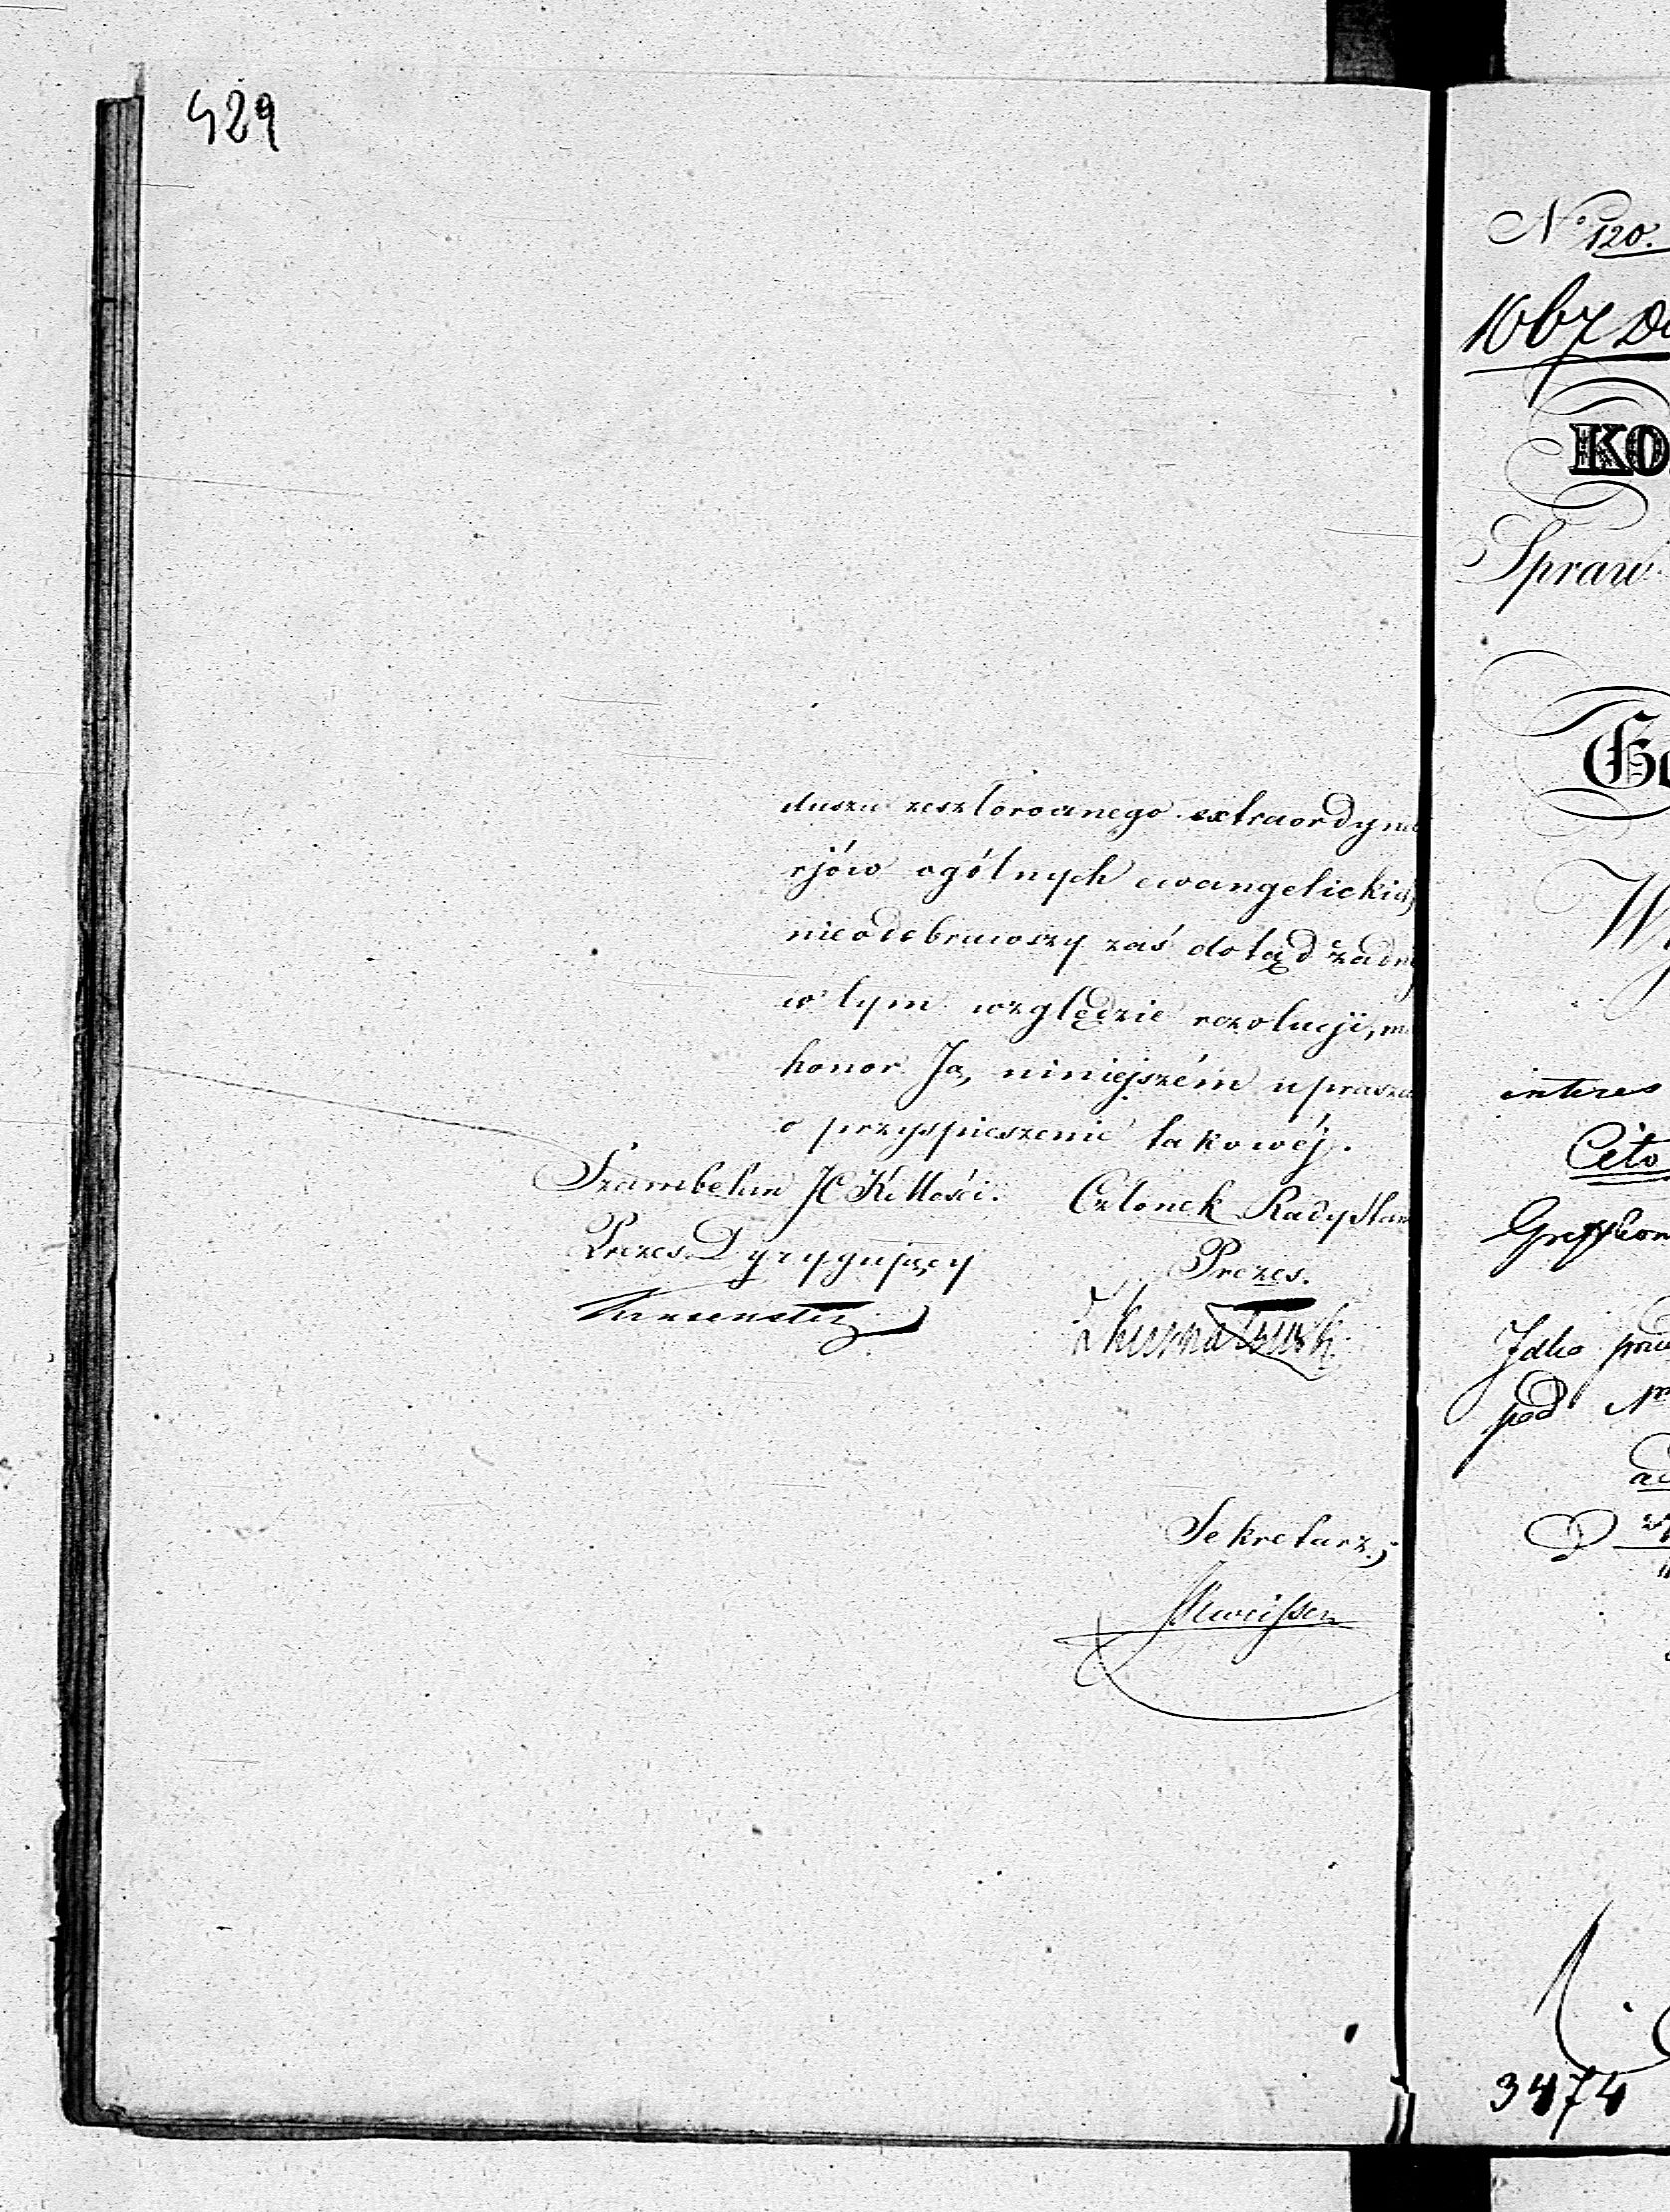 429
duszu zeszłorocznego extraordyna
rjów ogólnych ewangelickich,
nieodebrawszy zaś dotąd żadn
w tym względzie rezolucji, m
honor Ją, niniejszém uprasza
o przyspieszenie takowéj.
Szambelan JCKMości. Członek Rady Stan
Prezes Dyrygujący Prezes.
Sekretarz,
No 120.
KO
Spraw
Go
W
interes
Cito
pod
3474